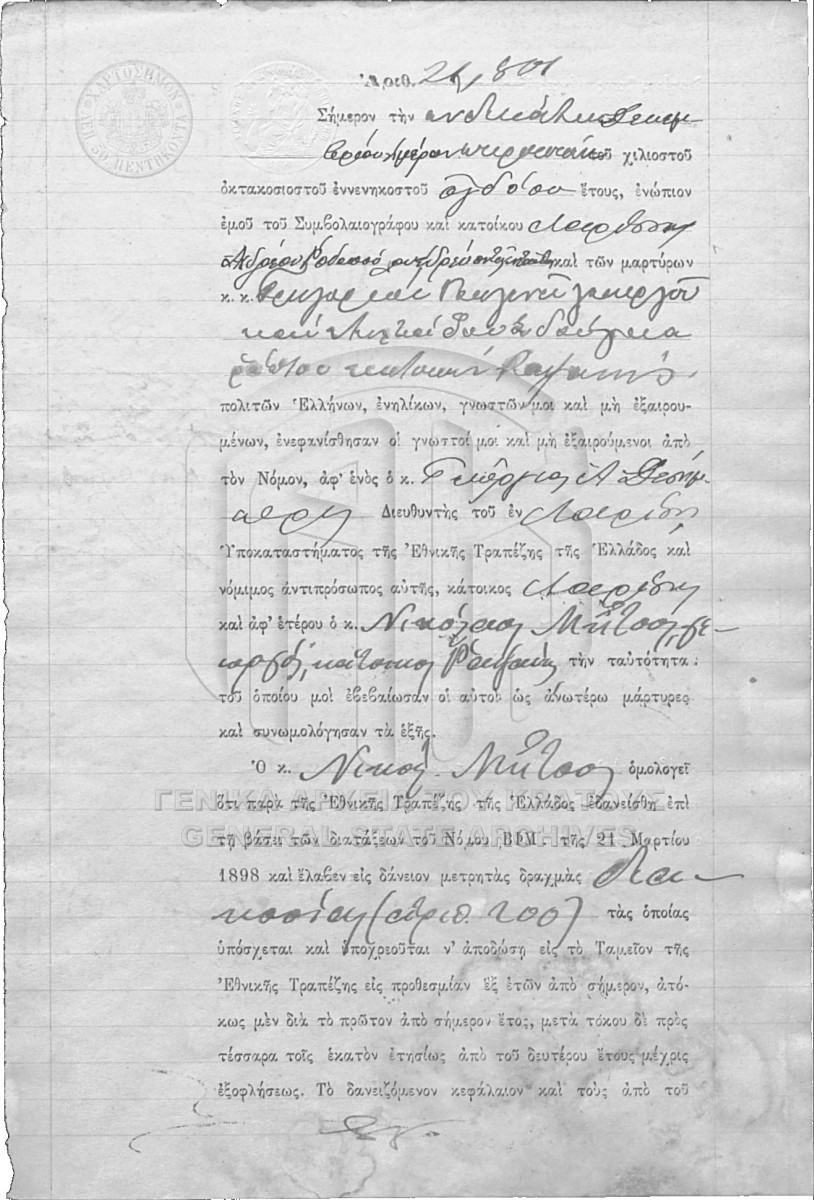 ΧΑΡΤΟΣΗΜΟΝ
50 ΠΕΝΤΗΚΟΝΤΑ
Ἀριθ. 21,801
Σήμερον τὴν ἑνδεκάτην Δεκεμ
βρίου ἡμέραν τοῦ χιλιοστοῦ
ὀκτακοσιοστοῦ ἐννενηκοστοῦ ὀγδόου ἔτους, ἐνώπιον
ἐμοῦ τοῦ Συμβολαιογράφου καὶ κατοίκου Λαρίσσης
καὶ τῶν μαρτύρων
κ. κ.
καὶ
κατοίκων Ραψάνης
πολιτῶν Ἑλλήνων, ἐνηλίκων, γνωστῶν μοι καὶ μὴ ἐξαιρου-
μένων, ἐνεφανίσθησαν οἱ γνωστοί μοι καὶ μὴ ἐξαιρούμενοι ἀπὸ
τὸν Νόμον, ἀφ' ἑνὸς ὁ κ. Γεώργιος Α
Διευθυντὴς τοῦ ἐν Λαρίσῃ
Ὑποκαταστήματος τῆς Ἐθνικῆς Τραπέζης τῆς Ἑλλάδος καὶ
νόμιμος ἀντιπρόσωπος αὐτῆς, κάτοικος Λαρίσσης
καὶ ἀφ' ἑτέρου ὁ κ. Νικόλαος Μῆτσος, γε-
ωργός, κάτοικος Ραψάνης τὴν ταὐτότητα
τοῦ ὁποίου μοὶ ἐβεβαίωσαν οἱ αὐτοὶ ὡς ἀνωτέρω μάρτυρες
καὶ συνωμολόγησαν τὰ ἑξῆς.
Ὁ κ. Νικόλ. Μῆτσος ὁμολογεῖ
ΓΕΝΙΚΑ ΑΡΧΕΙΑ ΤΟΥ ΚΡΑΤΟΥΣ
ὅτι παρὰ τῆς Ἐθνικῆς Τραπέζης τῆς Ἑλλάδος ἐδανείσθη ἐπὶ
GENERAL STATE ARCHIVES
τῇ βάσει τῶν διατάξεων τοῦ Νόμου ΒΦΜ. τῆς 21 Μαρτίου
1898 καὶ ἔλαβεν εἰς δάνειον μετρητὰς δραχμὰς δια-
κοσίας (ἀριθ. 200) τὰς ὁποίας
ὑπόσχεται καὶ ὑποχρεοῦται ν' ἀποδώσῃ εἰς τὸ Ταμεῖον τῆς
Ἐθνικῆς Τραπέζης εἰς προθεσμίαν ἓξ ἐτῶν ἀπὸ σήμερον, ἀτό-
κως μὲν διὰ τὸ πρῶτον ἀπὸ σήμερον ἔτος, μετὰ τόκου δὲ πρὸς
τέσσαρα τοῖς ἑκατὸν ἐτησίως ἀπὸ τοῦ δευτέρου ἔτους μέχρις
ἐξοφλήσεως. Τὸ δανειζόμενον κεφάλαιον καὶ τοὺς ἀπὸ τοῦ